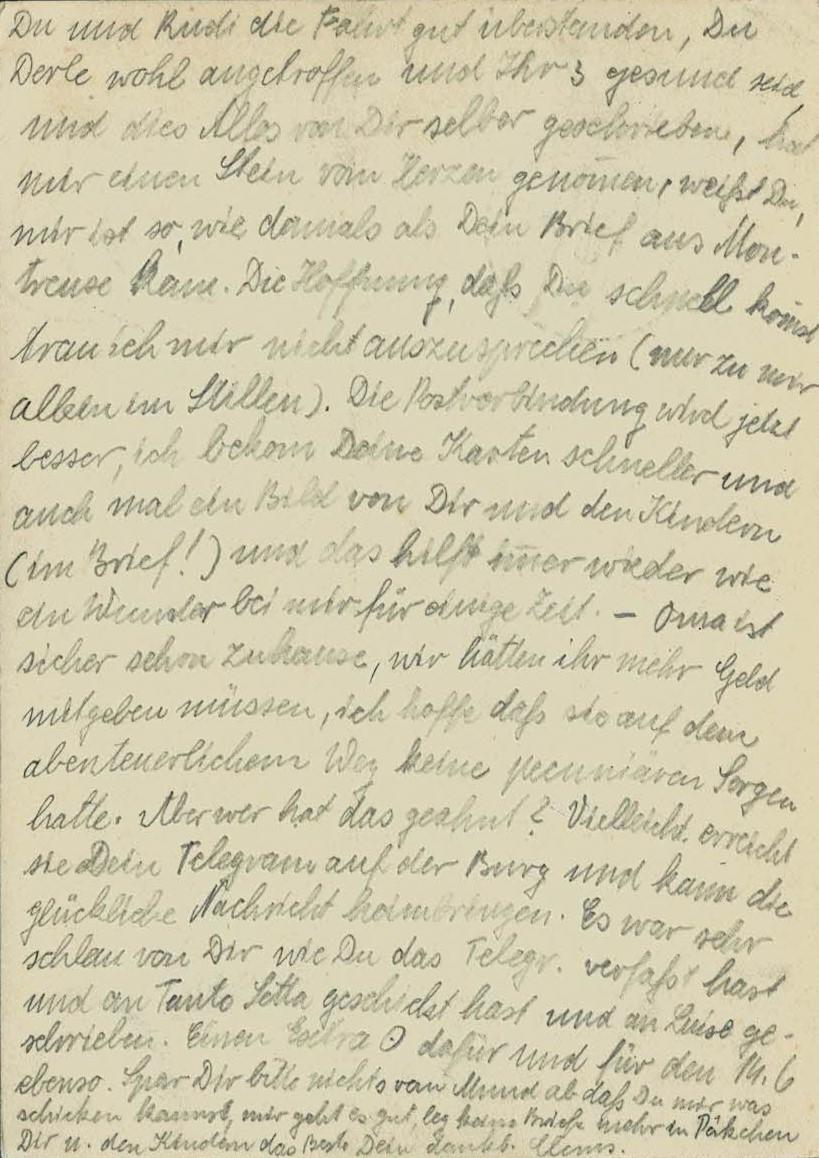 Du und Rudi die Fahrt gut überstanden, Du
Derle wohl angetroffen und Ihr 3 gesund seid,
und dies Alles von Dir selber geschrieben, hat
mir einen Stein vom Herzen genom̄en, weißt Du,
mir ist so, wie damals als Dein Brief aus Mon-
treuse kam. Die Hoffnung, daß Du schnell kom̄st
trau ich mir nicht auszusprechen (nur zu mir
allein im Stillen). Die Postverbindung wird jetzt
besser, ich bekom Deine Karten schneller und
auch mal ein Bild von Dir und den Kindern
(im Brief!) und das hilft im̄er wieder wie
ein Wunder bei mir für einige Zeit. – Oma ist
sicher schon zuhause, wir hätten ihr mehr Geld
mitgeben müssen, ich hoffe daß sie auf dem
abenteuerlichem Weg keine pecuniären Sorgen
hatte. Aber wer hat das geahnt? Vielleicht erreicht
sie Dein Telegram auf der Burg und kann die
glückliche Nachricht heimbringen. Es war sehr
schlau von Dir wie Du das Telegr. verfaßt hast
und an Tante Setta geschickt hast und an Luise ge-
schrieben. Einen Extra ʘ dafür und für den 14. 6
ebenso. Spar Dir bitte nichts vom Mund ab daß Du mir was
schicken kannst, mir geht es gut, leg keine Briefe mehr in Päkchen
Dir u. den Kindern das Beste Dein dankb. Clems.